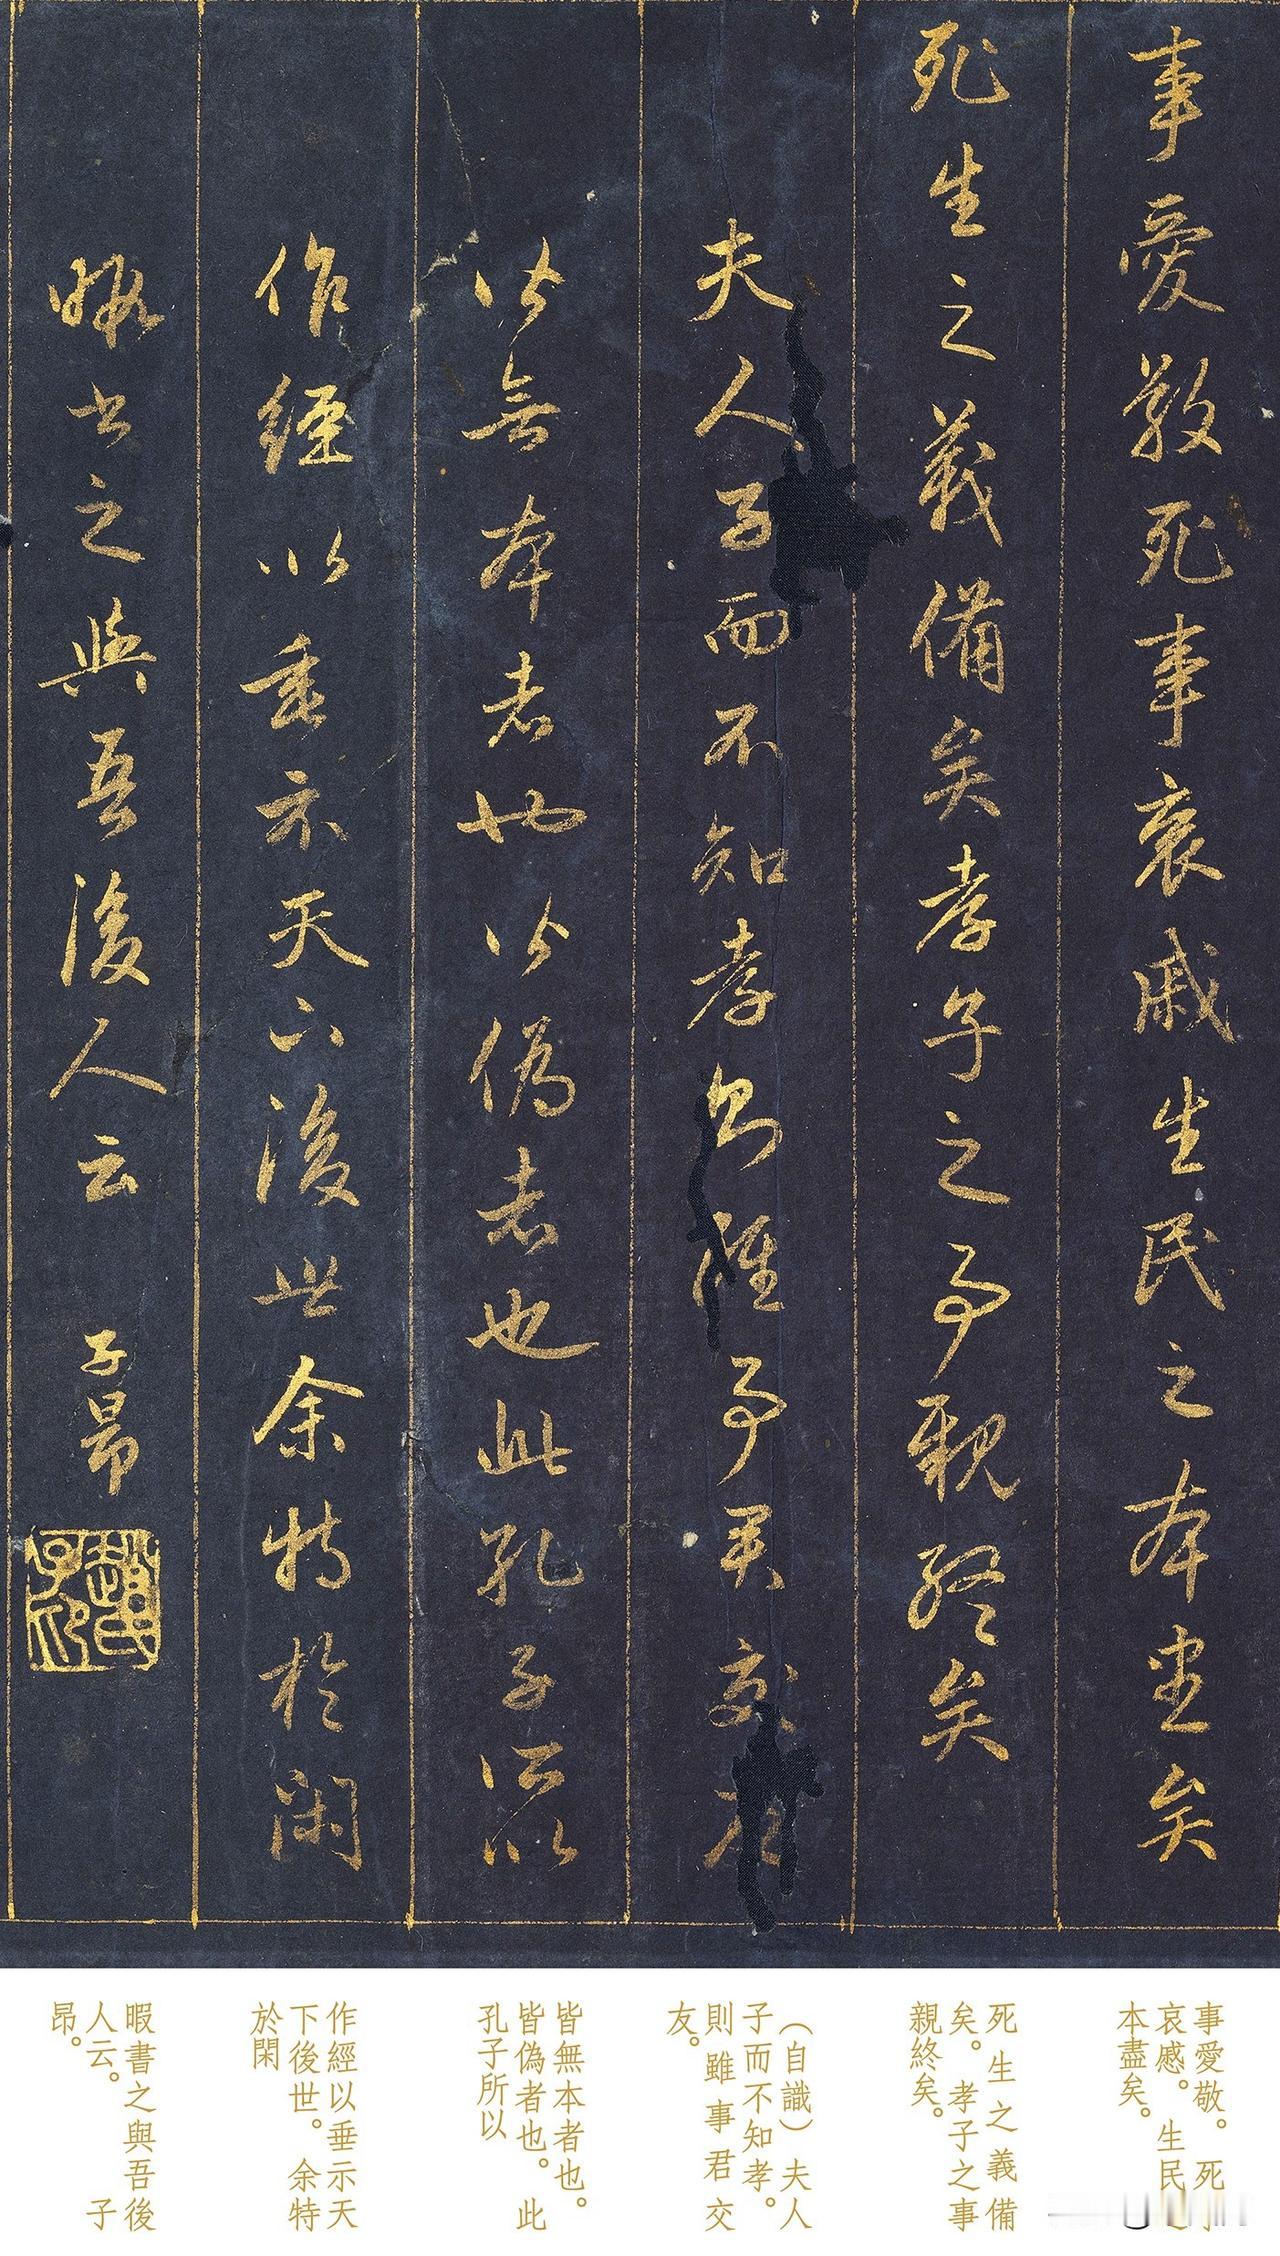 事愛敬死事哀戚生民之本盡矣
死生之義備矣孝子之事親終矣
夫人子而不知孝則雖事君交友
皆無本者也皆偽者也此孔子所以
作經以垂示天下後世余特於閑
暇書之與吾後人云 子昂
趙氏子印
事愛敬。死
哀慼。生民
本盡矣。
死生之義備
矣。孝子之事
親終矣。
(自識)夫人
子而不知孝。
則雖事君交
友。
皆無本者也。
皆偽者也。此
孔子所以
作經以垂示天
下後世。余特
於閑
暇書之與吾後
人云。 子
昂。